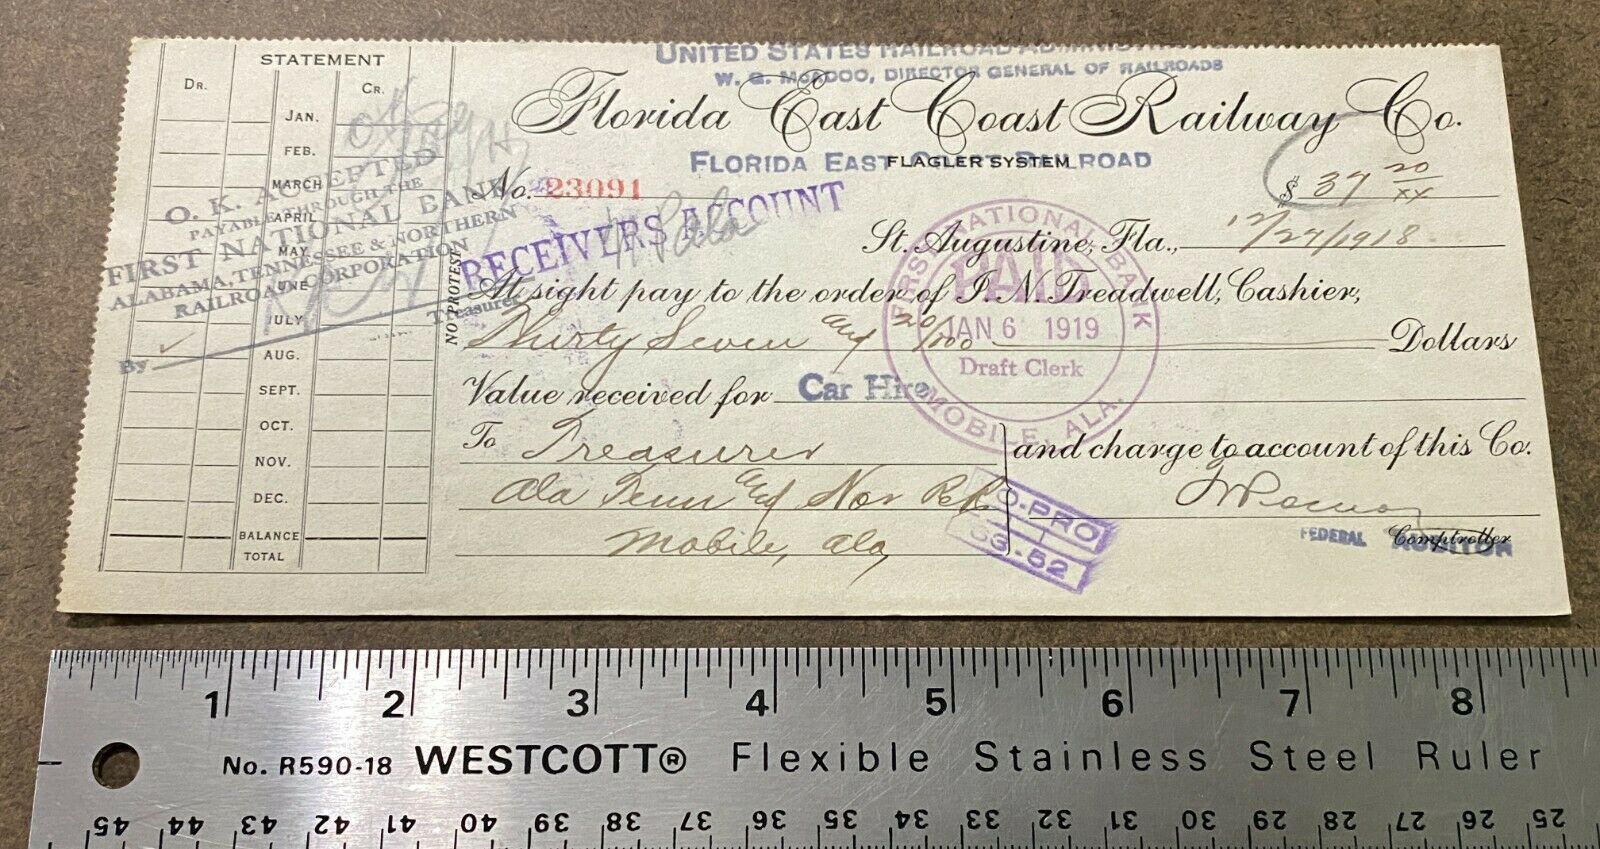 UNITED STATES RAILROAD ADMINISTRATION
W. G. McADOO, DIRECTOR GENERAL OF RAILROADS
Florida East Coast Railway Co.
FLORIDA EAST COAST RAILROAD
FLAGLER SYSTEM
No. 23091
$ 37 20/XX
RECEIVERS ACCOUNT
St. Augustine, Fla., 12/27/1918
At sight pay to the order of I. N. Treadwell, Cashier,
Thirty Seven and 20/100 Dollars
Value received for Car Hire
To Treasurer
Ala Tenn and Nor R.R.
Mobile, Ala
and charge to account of this Co.
FEDERAL AUDITOR
Comptroller
NO PROTEST
FIRST NATIONAL BANK
PAID
JAN 6 1919
Draft Clerk
MOBILE, ALA.
O-PRO
63-52
STATEMENT
DR.
CR.
JAN.
FEB.
MARCH
APRIL
MAY
JUNE
JULY
AUG.
SEPT.
OCT.
NOV.
DEC.
BALANCE
TOTAL
O. K. ACCEPTED
PAYABLE THROUGH THE
FIRST NATIONAL BANK
ALABAMA, TENNESSEE & NORTHERN
RAILROAD CORPORATION
Treasurer
By
1 2 3 4 5 6 7 8
No. R590-18 WESTCOTT® Flexible Stainless Steel Ruler
45 44 43 42 41 40 39 38 37 36 35 34 33 32 31 30 29 28 27 26 25